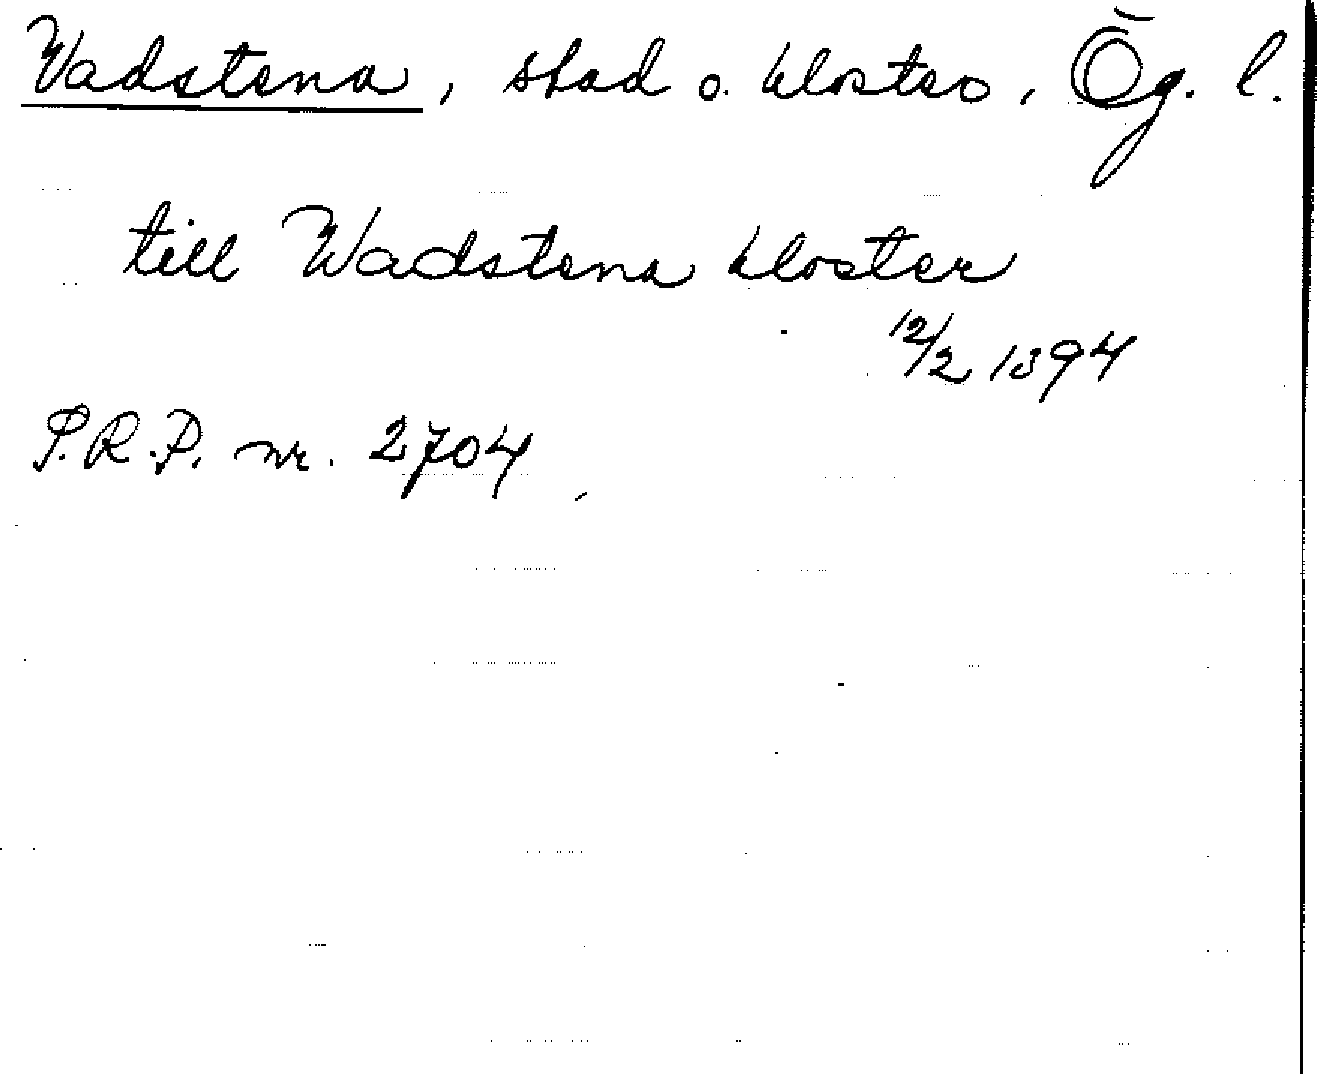 Vadstena, stad o. kloster, Ög. l.
till Wadstena kloster
12/2 1394
S.R.P. nr. 2704